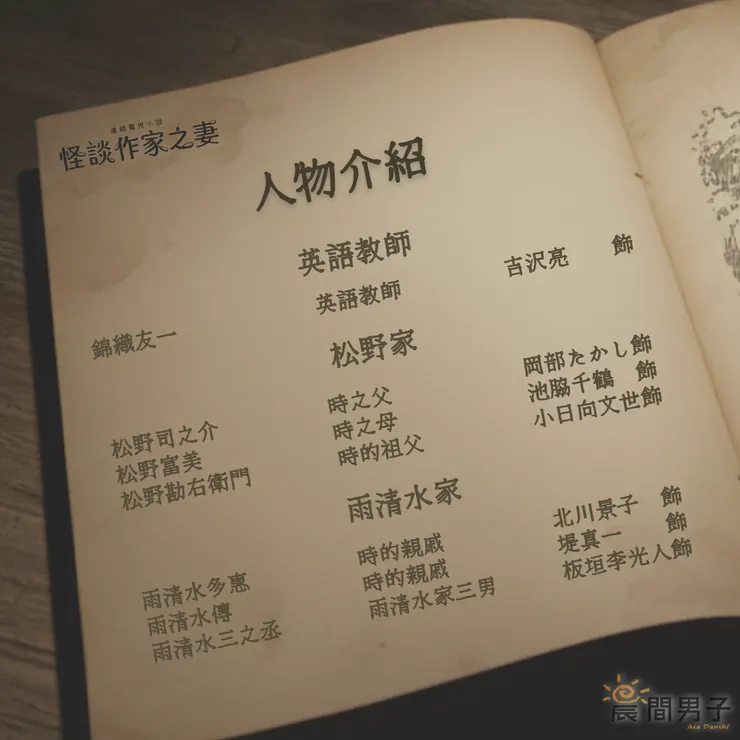 連續電視小說
怪談作家之妻
人物介紹
英語教師
錦織友一 英語教師 吉沢亮 飾
松野家
松野司之介 時之父 岡部たかし飾
松野富美 時之母 池脇千鶴 飾
松野勘右衛門 時的祖父 小日向文世飾
雨清水家
雨清水多惠 時的親戚 北川景子 飾
雨清水傳 時的親戚 堤真一 飾
雨清水三之丞 雨清水家三男 板垣李光人飾
晨間男子
Asa Danshi